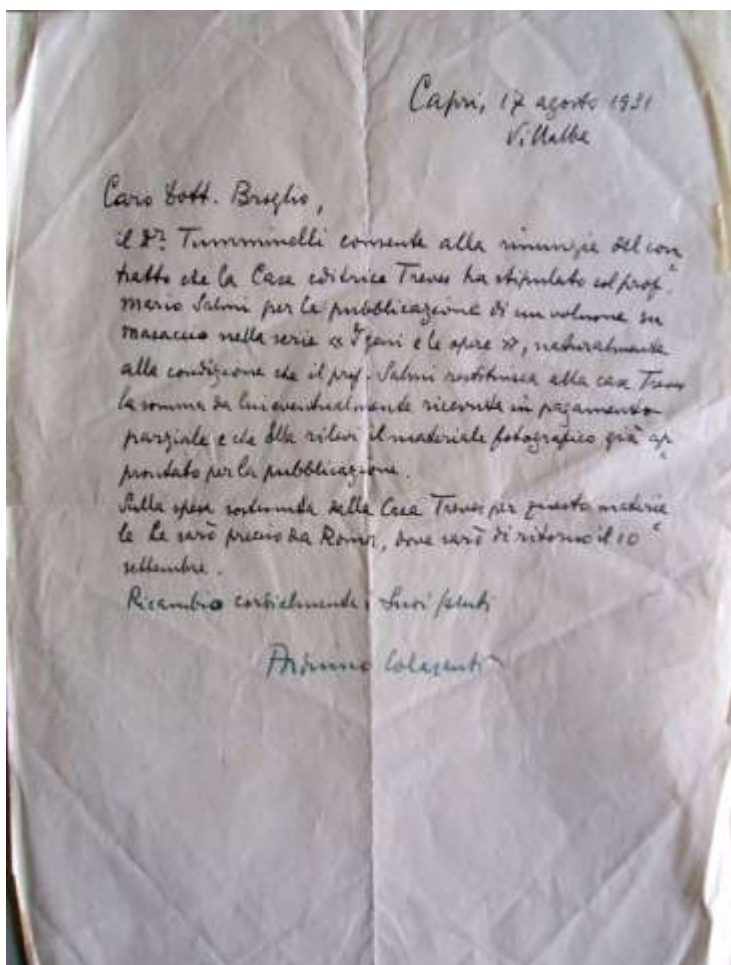 Capri, 17 agosto 1931
Villalba
Caro Dott. Broglio,
il Dr. Tumminelli consente alla rinunzia del con
tratto che la Casa editrice Treves ha stipulato col prof.
Mario Salmi per la pubblicazione di un volume su
Masaccio nella serie « I geni e le opere », naturalmente
alla condizione che il prof. Salmi restituisca alla casa Treves
la somma da lui eventualmente ricevuta in pagamento
parziale e che Ella rilevi il materiale fotografico già ap
prontato per la pubblicazione.
Sulla spesa sostenuta dalla Casa Treves per questo materia
le Le sarò preciso da Roma, dove sarò di ritorno il 10
settembre.
Ricambio cordialmente i Suoi saluti
Arduino Colasanti